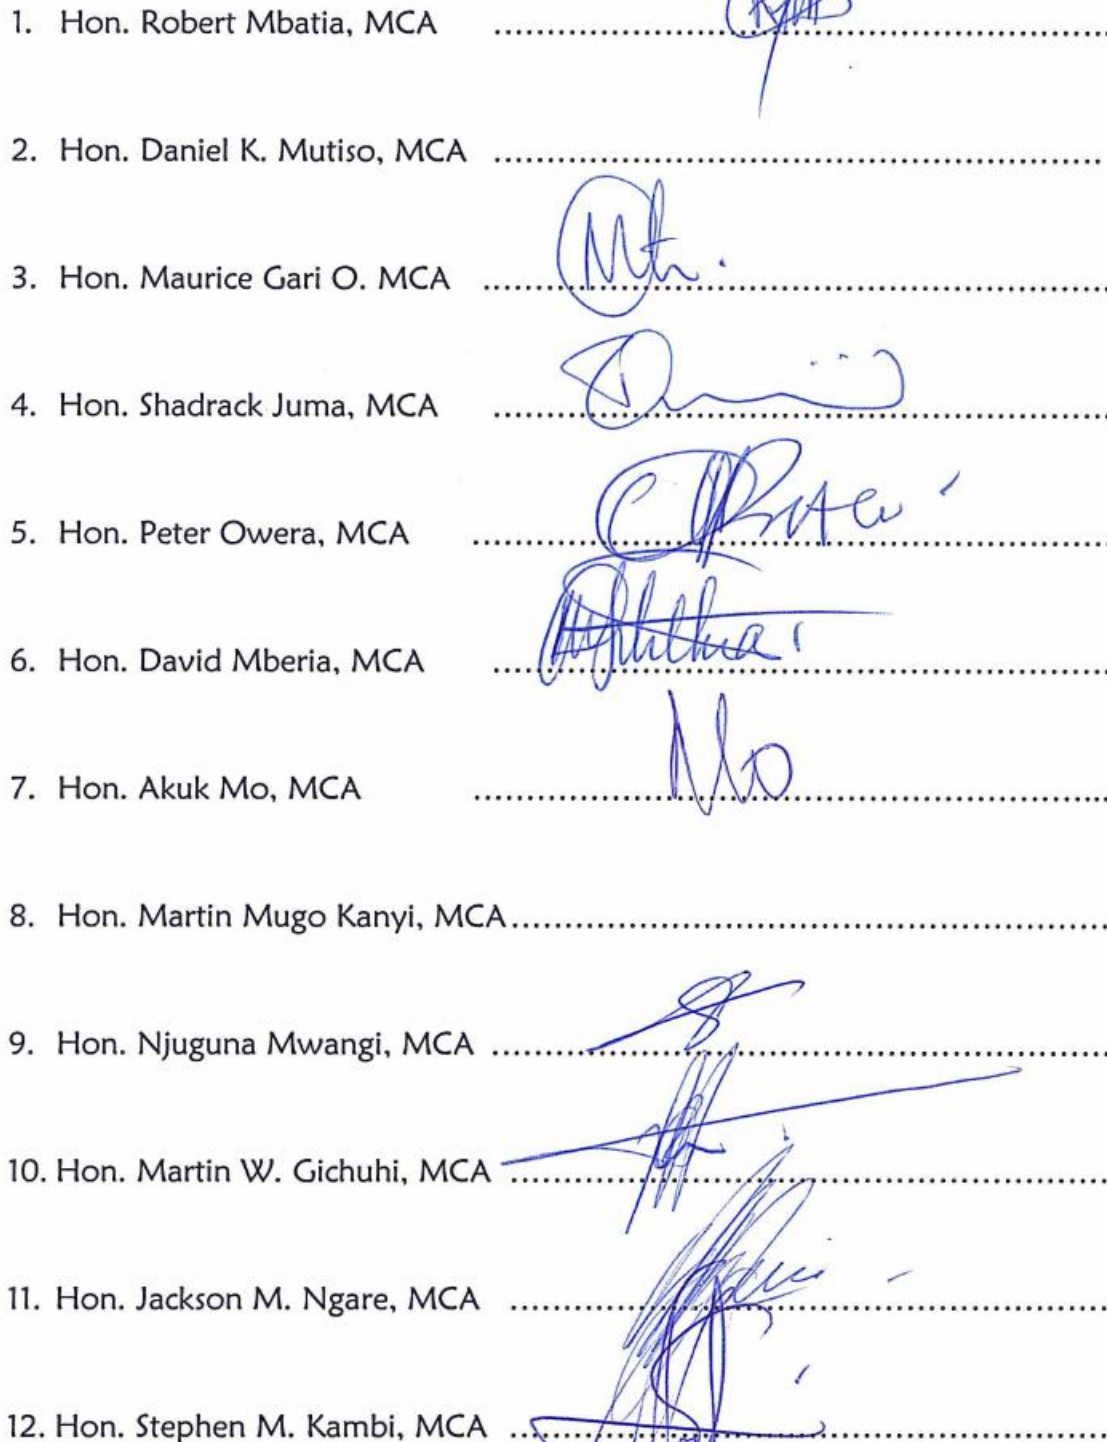 1. Hon. Robert Mbatia, MCA ........................................
2. Hon. Daniel K. Mutiso, MCA ........................................
3. Hon. Maurice Gari O. MCA ........................................
4. Hon. Shadrack Juma, MCA ........................................
5. Hon. Peter Owera, MCA ........................................
6. Hon. David Mberia, MCA ........................................
7. Hon. Akuk Mo, MCA ........................................ Mo
8. Hon. Martin Mugo Kanyi, MCA ........................................
9. Hon. Njuguna Mwangi, MCA ........................................
10. Hon. Martin W. Gichuhi, MCA ........................................
11. Hon. Jackson M. Ngare, MCA ........................................
12. Hon. Stephen M. Kambi, MCA ........................................